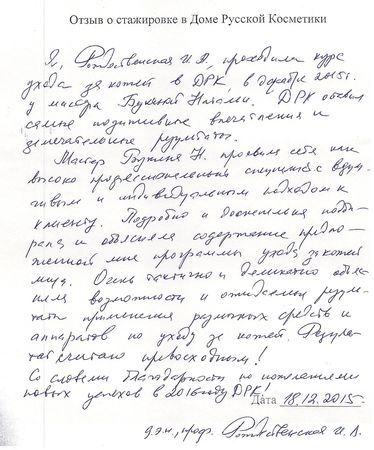 Отзыв о стажировке в Доме Русской Косметики
Я, Рождественская И.Л., проходила курс
ухода за кожей в ДРК, в декабре 2015г.
у мастера Букиной Натальи. ДРК оставил
самые позитивные впечатления и
замечательные результаты.
Мастер Букина Н. проявила себя как
высоко профессиональный специалист с вдум-
чивым и индивидуальным подходом к
клиенту. Подробно и
и объясняла содержание предло-
женной мне программы ухода за кожей
лица. Очень тактично и деликатно объяс-
няла возможности и ожидаемые резуль-
таты применения различных средств и
аппаратов по уходу за кожей. Резуль-
тат считаю превосходным!
Со словами благодарности и пожеланиями
новых успехов в 2016году ДРК!
Дата 18.12.2015.
д.э.н., проф. Рождественская И.Л.